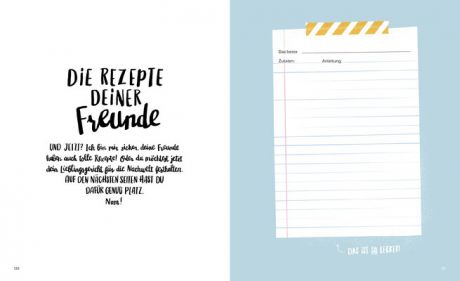 DIE REZEPTE
DEINER
Freunde
UND JETZT? Ich bin mir sicher, deine Freunde
haben auch tolle Rezepte! Oder du möchtest jetzt
dein Lieblingsgericht für die Nachwelt festhalten.
AUF DEN NÄCHSTEN SEITEN HAST DU
DAFÜR GENUG PLATZ.
Nom!
Das beste
Zutaten: Anleitung:
DAS IST SO LECKER!